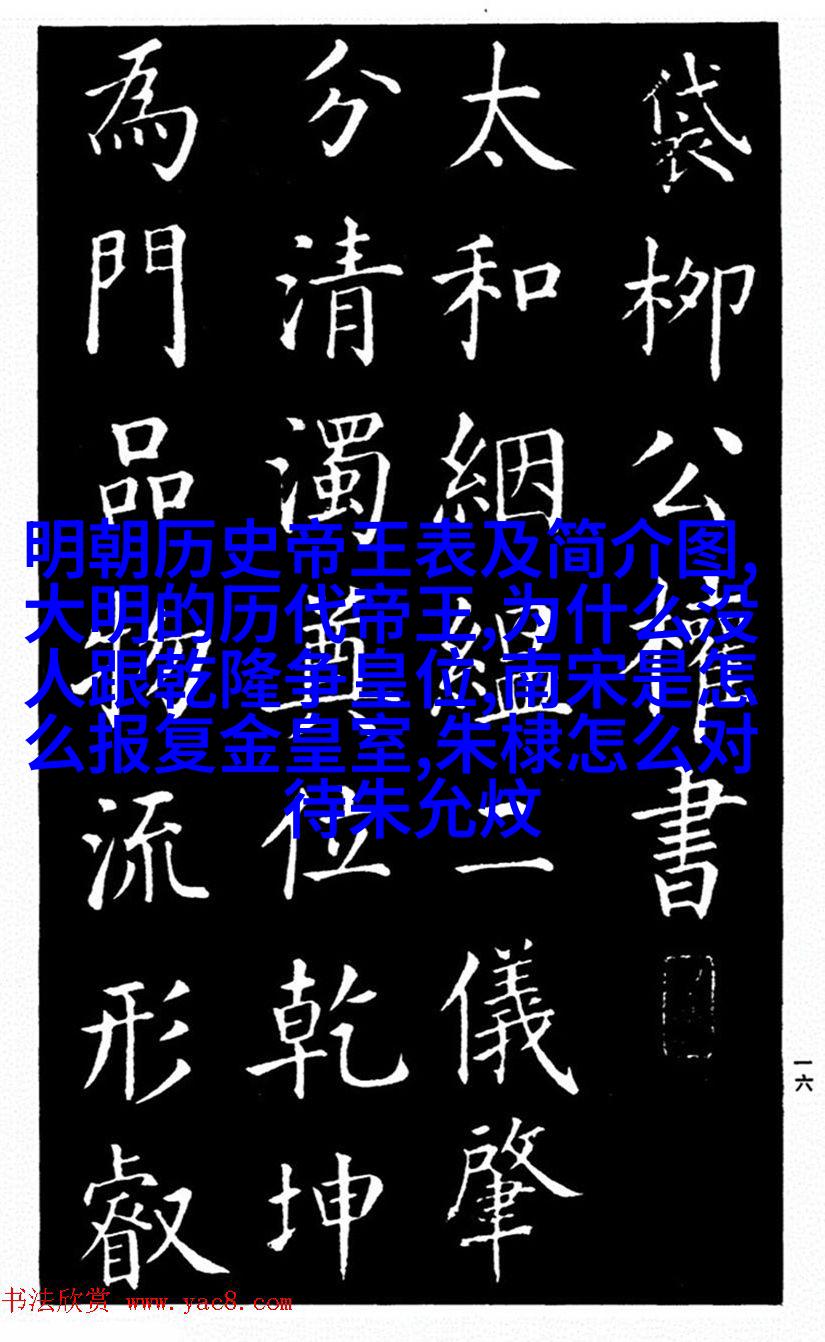 袋柳公權書
太和絪緼二儀肇
分清濁奠位乾坤
為門品物流形叡
明朝历史帝王表及简介图,
大明的历代帝王,为什么没
人跟乾隆争皇位,南宋是怎
么报复金皇室,朱棣怎么对
待朱允炆
一六
书法欣赏 www.yac8.com